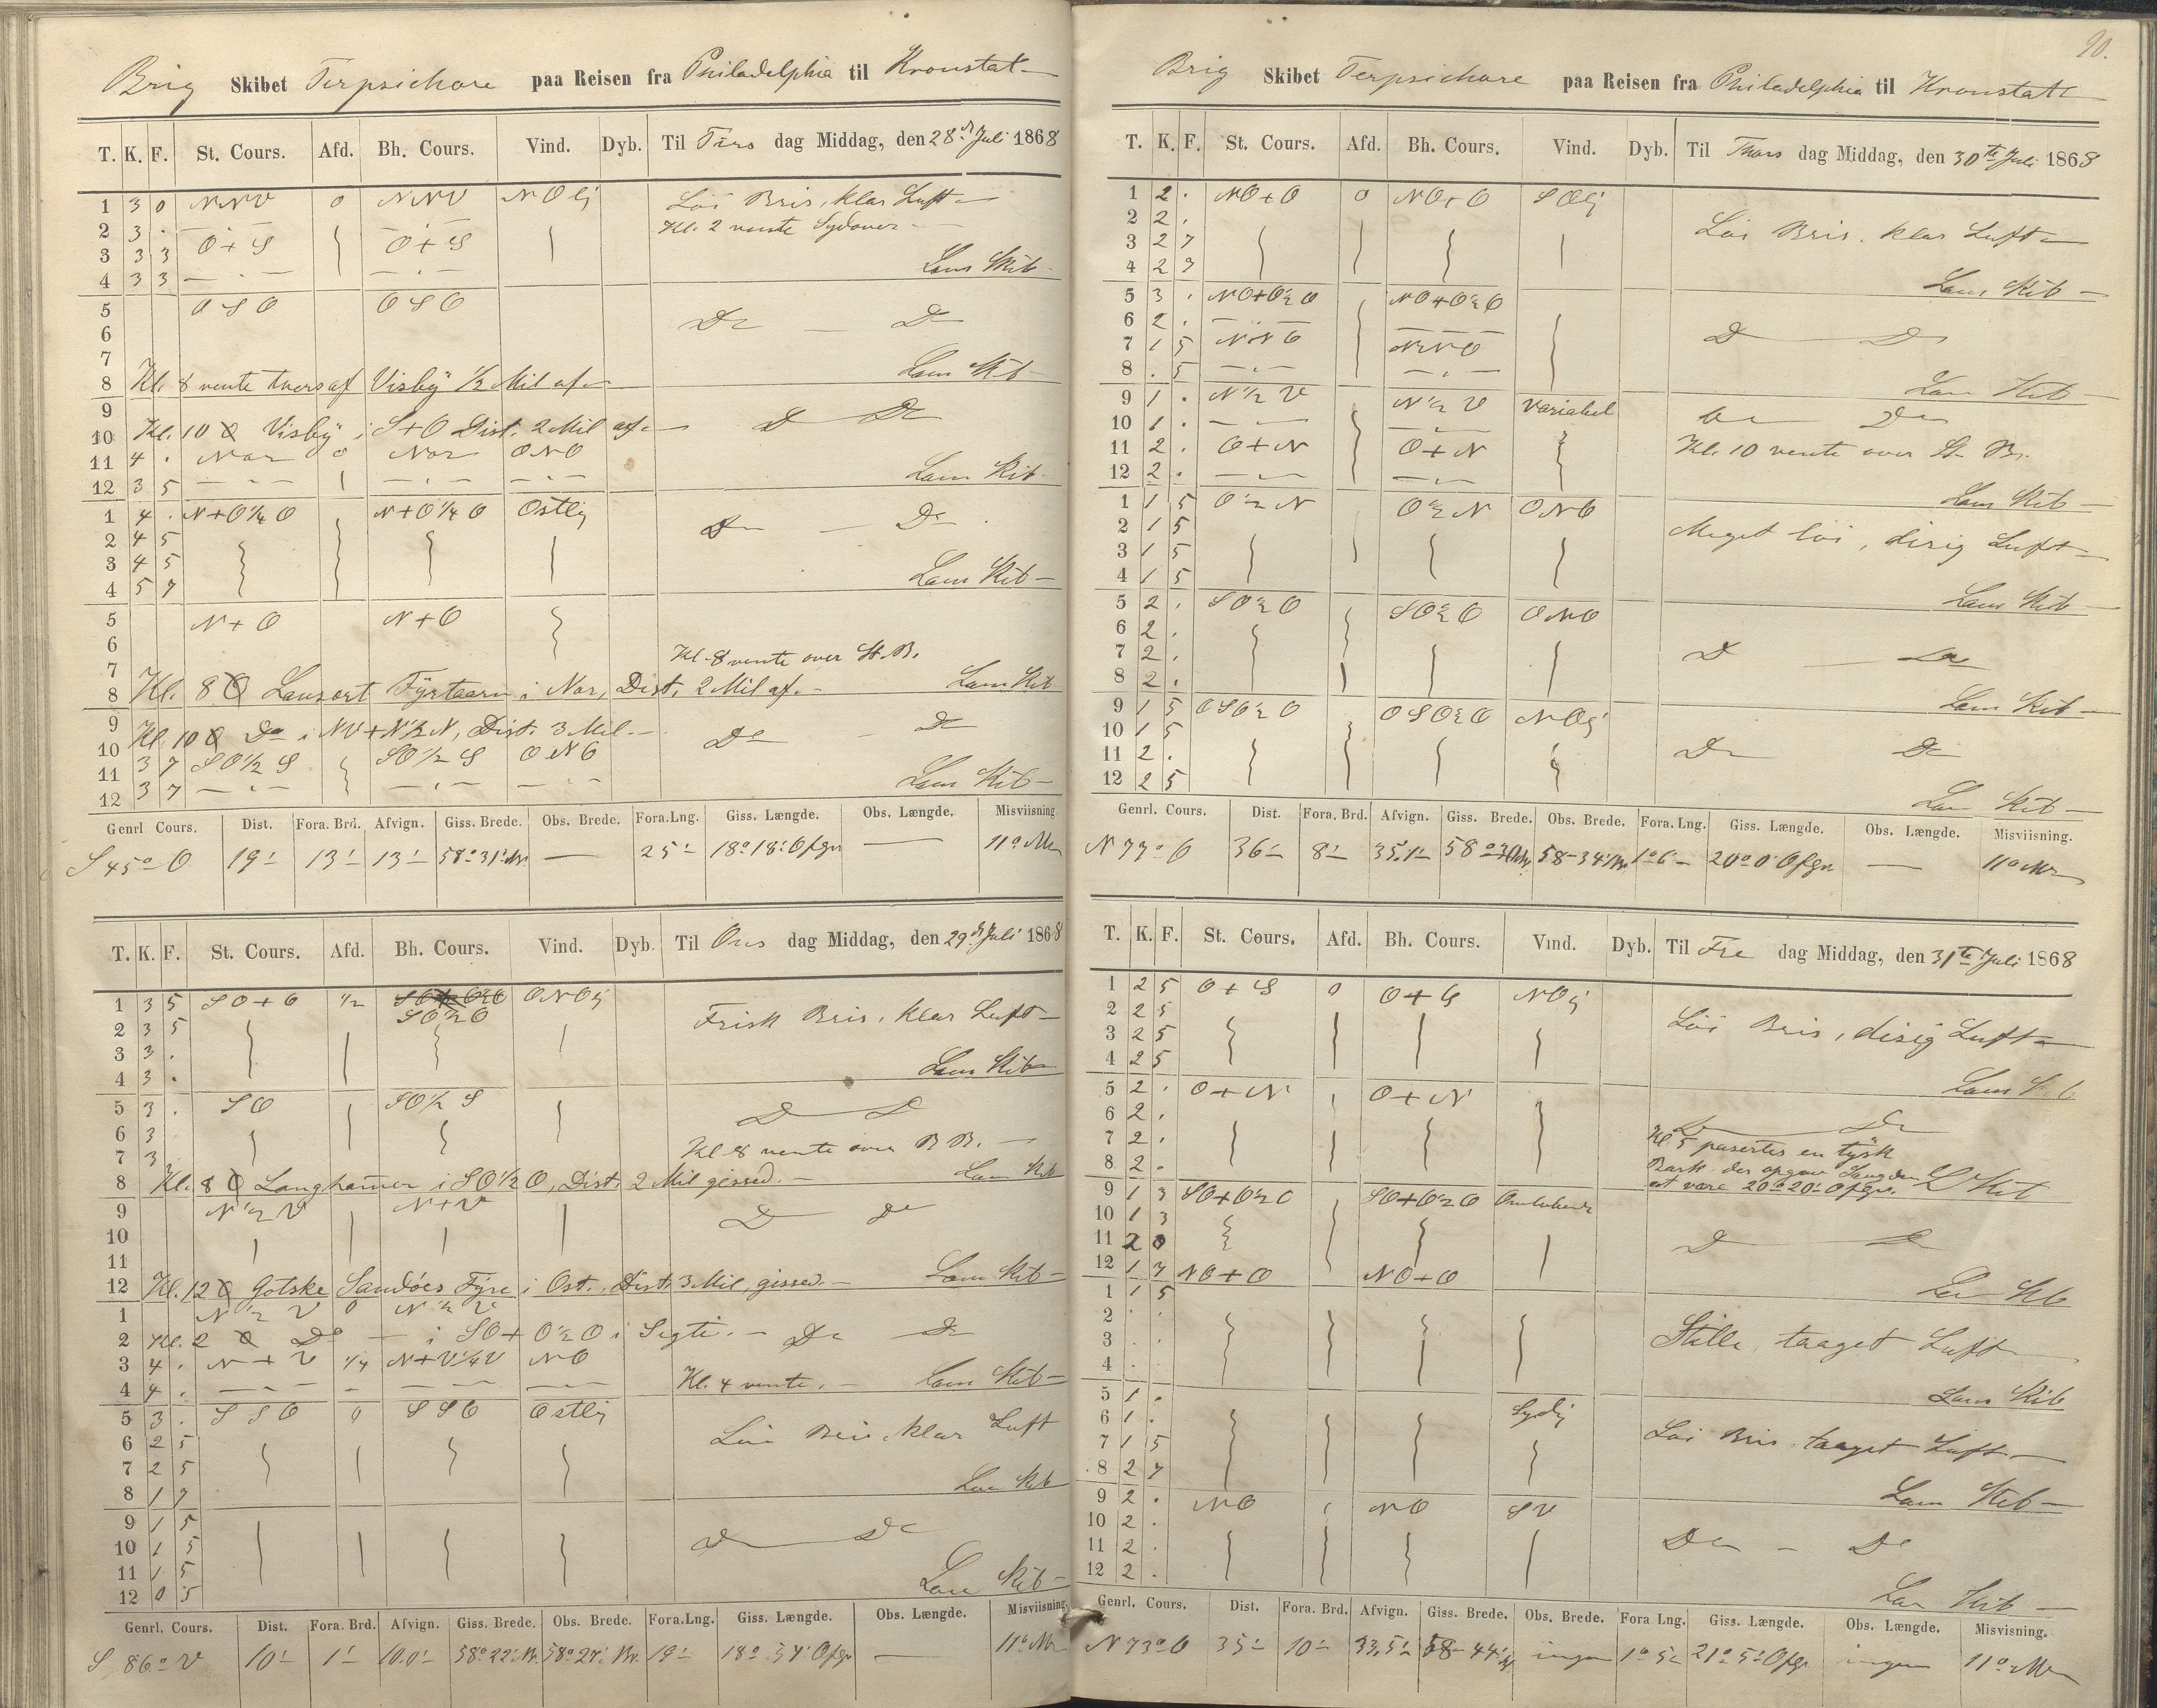 Brig Skibet Terpsichore paa Reisen fra Philadelphia til Kronstat
T. K. F. St. Cours. Afd. Bh. Cours. Vind. Dyb. Til Tirs dag Middag, den 28de Juli 1868
1 3 0 NNV 0 NNV NOlj Löi Bris, klar Luft
2 3 . — — Kl. 2 vente Sydover
3 3 3 O+S O+S
4 3 3 — . — — . — Lans Kib
5 OSO OSO
6 Do — Do
7
8 Kl. 8 vente tvers af Visby 1/2 Mil af Lans Kib
9
10 Kl. 10 Visby i S+O Dist. 2 Mil af Do Do
11 4 . Nor 0 Nor ONO
12 3 5 — . — — . — — . — Lans Kib
1 4 . N+O 1/4 O N+O 1/4 O Ostlig
2 4 5 Do — Do
3 4 5
4 5 7 Lans Kib
5 N+O N+O
6
7 Kl. 8 vente over St. B.
8 Kl. 8 Lansort Fyrtaarn i Nor, Dist. 2 Mil af. Lans Kib
9
10 Kl. 10 Do i NV+N 1/2 N, Dist. 3 Mil. Do — Do
11 3 7 SO 1/2 S SO 1/2 S ONO
12 3 7 — . — — . — — . — Lans Kib
Genrl Cours. Dist. Fora. Brd. Afvign. Giss. Brede. Obs. Brede. Fora. Lng. Giss. Længde. Obs. Længde. Misviisning.
S 45° O 19' 13' 13' 58° 31' Nr. — 25' 18° 18' Ofgr — 11°
T. K. F. St. Cours. Afd. Bh. Cours. Vind. Dyb. Til Ons dag Middag, den 29de Juli 1868
1 3 5 SO+O 1/2 ONOlj
2 3 5 SO 1/2 O Frisk Bris, klar Luft
3 3 .
4 3 . Lans Kib
5 3 . SO SO 1/2 S
6 3 Do Do
7 3 Kl 8 vente over B B.
8 Kl. 8 Langhamer i SO 1/2 O, Dist. 2 Mil gissed. Lans Kib
9 N 1/2 V N+V
10 Do Do
11
12 Kl. 12 Gotske Sandöes Fyre i Ost., Dist. 3 Mil, gissed. Lans Kib
1 N 1/2 V 0 N 1/2 V
2 Kl. 2 Do — i SO+O 1/2 O i Sigte. Do Do
3 4 . N+V 1/4 N+V 1/4 V NO
4 4 . — — — — — Kl. 4 vente. Lans Kib
5 3 . SSO 0 SSO Ostlij
6 2 5 Löi Bris, klar Luft
7 2 5
8 1 7 Lans Kib
9 1 5
10 1 5 Do Do
11 1 5
12 0 5 Lans Kib
Genrl. Cours. Dist. Fora. Brd. Afvign. Giss. Brede. Obs. Brede. Fora. Lng. Giss. Længde. Obs. Længde. Misviisning.
S 86° V 10' 1' 10.0' 58° 22' Nr. 58° 27' Nr. 19' 18° 54' Ofgr — 11°
90.
Brig Skibet Terpsichore paa Reisen fra Philadelphia til Kronstatt
T. K. F. St. Cours. Afd. Bh. Cours. Vind. Dyb. Til Thors dag Middag, den 30te Juli 1868
1 2 . NO+O 0 NO+O SOlj
2 2 . Löi Bris, klar Luft
3 2 7
4 2 7 Lans Kib
5 3 . NO+O 1/2 O NO+O 1/2 O
6 2 . — . — — Do Do
7 1 5 NNO NNO
8 . 5 — . — — . — Lans Kib
9 1 . N 1/2 V N 1/2 V Variabel
10 1 . — . — — . — Do Do
11 2 . O+N O+N Kl. 10 vente over St. B.
12 2 . — . — — . — Lans Kib
1 1 5 O 1/2 N O 1/2 N ONO
2 1 5 Meget löi, disig Luft
3 1 5
4 1 5 Lans Kib
5 2 . SO 1/2 O SO 1/2 O ONO
6 2 .
7 2 . Do Do
8 2 . Lans Kib
9 1 5 OSO 1/2 O OSO 1/2 O NOlj
10 1 5
11 2 . Do Do
12 2 5 Lans Kib
Genrl. Cours. Dist. Fora. Brd. Afvign. Giss. Brede. Obs. Brede. Fora. Lng. Giss. Længde. Obs. Længde. Misviisning.
N 77° O 36' 8' 35.1' 58° 58° 34' Nr. 1° 6' 20° 0' Ofgr. — 11°
T. K. F. St. Cours. Afd. Bh. Cours. Vind. Dyb. Til Fre dag Middag, den 31te Juli 1868
1 2 5 O+S 0 O+S NOlj
2 2 5 Löi Bris, disig Luft
3 2 5
4 2 5 Lans Kib
5 2 . O+N O+N
6 2 . Do Do
7 2 . Kl. 5 pasertes en tysk
8 2 . Bark der opgav Længden
at være 20° 20' Ofgr. Kib
9 1 3 SO+O 1/2 O SO+O 1/2 O Omlobende
10 1 3
11 2 0 Do Do
12 1 7 NO+O NO+O Lans Kib
1 1 5
2 . . Stille, taaget Luft
3 . .
4 . . Lans Kib
5 1 . Sydlij
6 1 . Löi Bris, taaget Luft
7 1 5
8 2 7 Lans Kib
9 2 . NO NO SV
10 2 . Do — Do
11 2 .
12 2 . Lans Kib
Genrl. Cours. Dist. Fora. Brd. Afvign. Giss. Brede. Obs. Brede. Fora Lng. Giss. Længde. Obs. Længde. Misviisning.
N 73° O 35' 10' 33,5' 58° 44' N ingen 1° 5' 21° 5' Ofgr ingen 11°